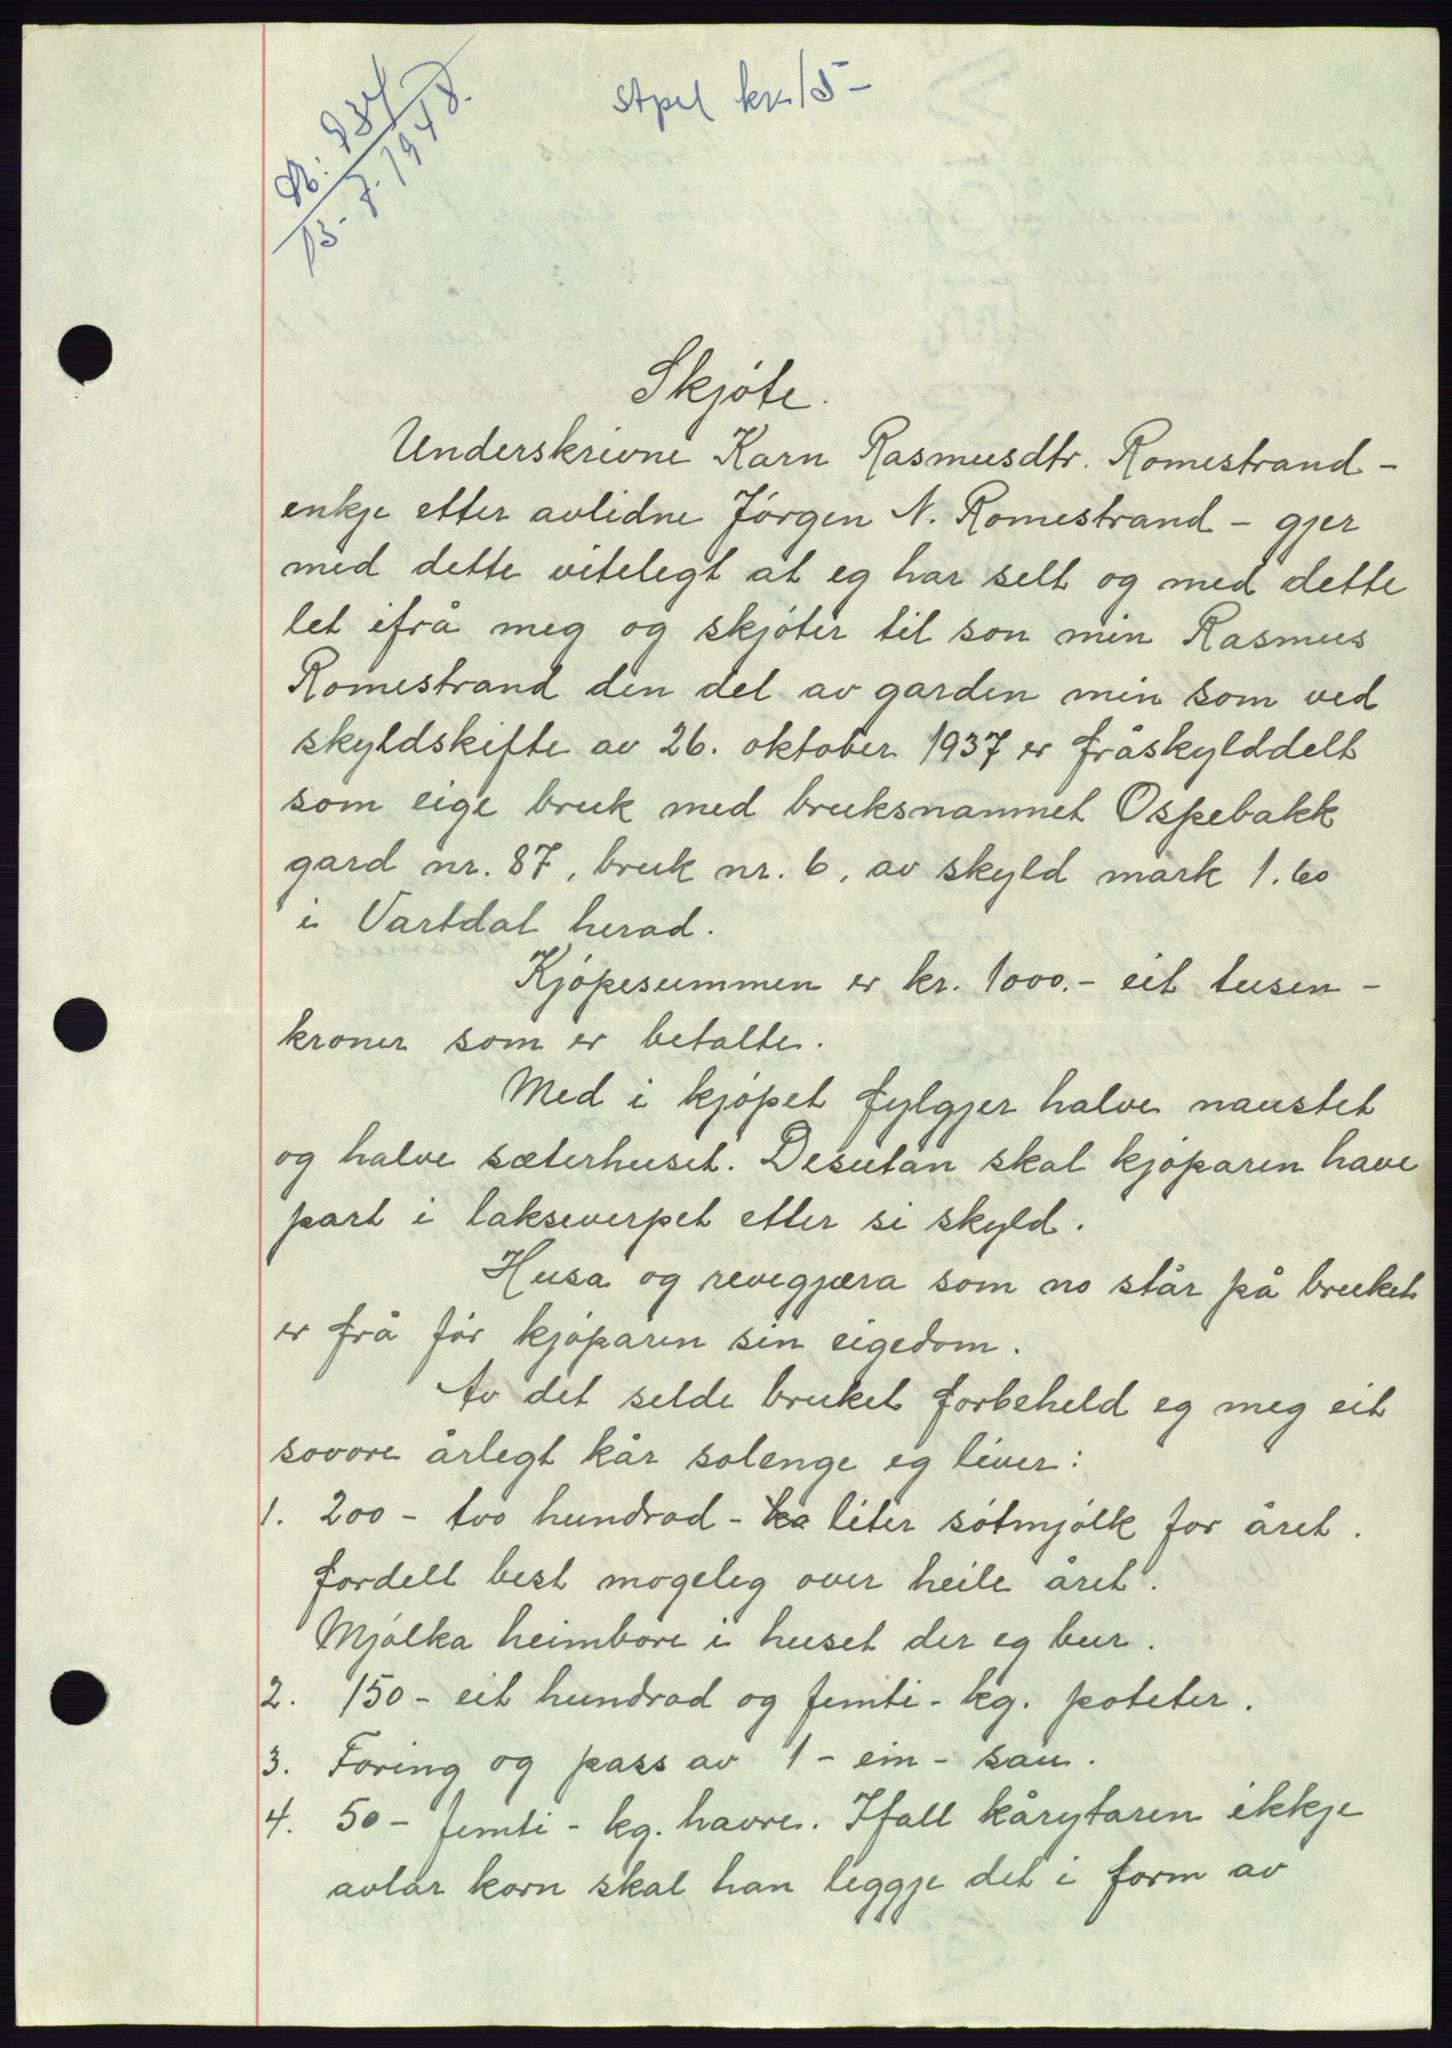 stpel kr. 15-
13-7-1948.
Skjøte.
Underskrivne Karn Rasmusdtr. Romestrand -
enkje etter avlidne Jørgen N. Romestrand - gjer
med dette vitelegt at eg har selt og med dette
let ifrå meg og skjøter til son min Rasmus
Romestrand den del av garden min som ved
skyldskifte av 26. oktober 1937 er fråskylddelt
som eige bruk med bruksnamnet Ospebakk
gard nr. 87, bruk nr. 6, av skyld mark 1.60
i Vartdal herad.
Kjøpesummen er kr. 1000.- eit tusen -
kroner som er betalte.
Med i kjøpet fylgjer halve naustet
og halve sæterhuset. Desutan skal kjøparen have
part i lakseverpet etter si skyld.
Husa og revegjæra som no står på bruket
er frå før kjøparen sin eigedom.
Av det selde bruket forbeheld eg meg eit
sovore årlegt kår solenge eg liver:
1. 200 - two hundrad - liter søtmjølk for året.
fordelt best mogeleg over heile året.
Mjølka heimbore i huset der eg bur.
2. 150 - eit hundrad og femti - kg. poteter.
3. Foring og pass av 1 - ein - sau.
4. 50 - femti - kg. havre. Ifall kårytaren ikkje
avlar korn skal han leggje det i form av